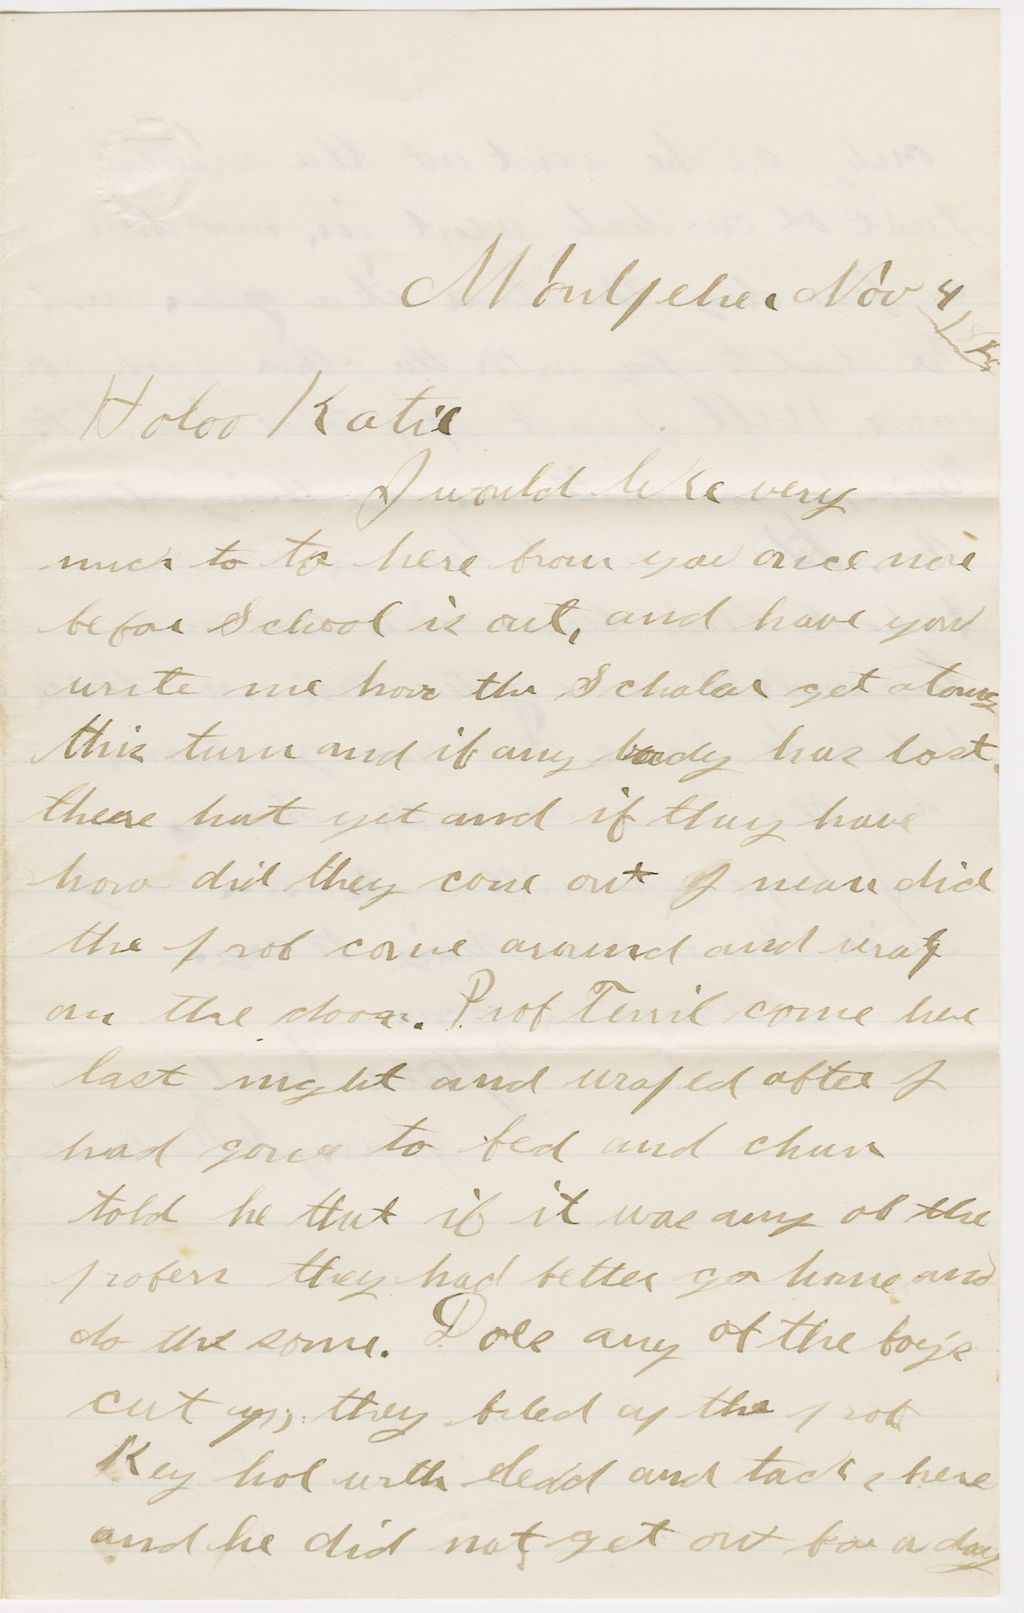 Montpelier Nov 4
Holoo Katie
I would like very
much to to here from you once more
befoar School is out, and have you
write me how the Scholar get along
this turn and if any body has lost
there hat yet and if thay have
how did they come out I mean did
the prof come around and wrap
on the door. Prof Terril come here
last night and wraped after I
had gone to bed and chum
told he that if it was any of the
profers they had better go home and
do the some. Does any of the boys
cut up, they filed up the prof
Key hol with lead and tacks here
and he did not get out for a day